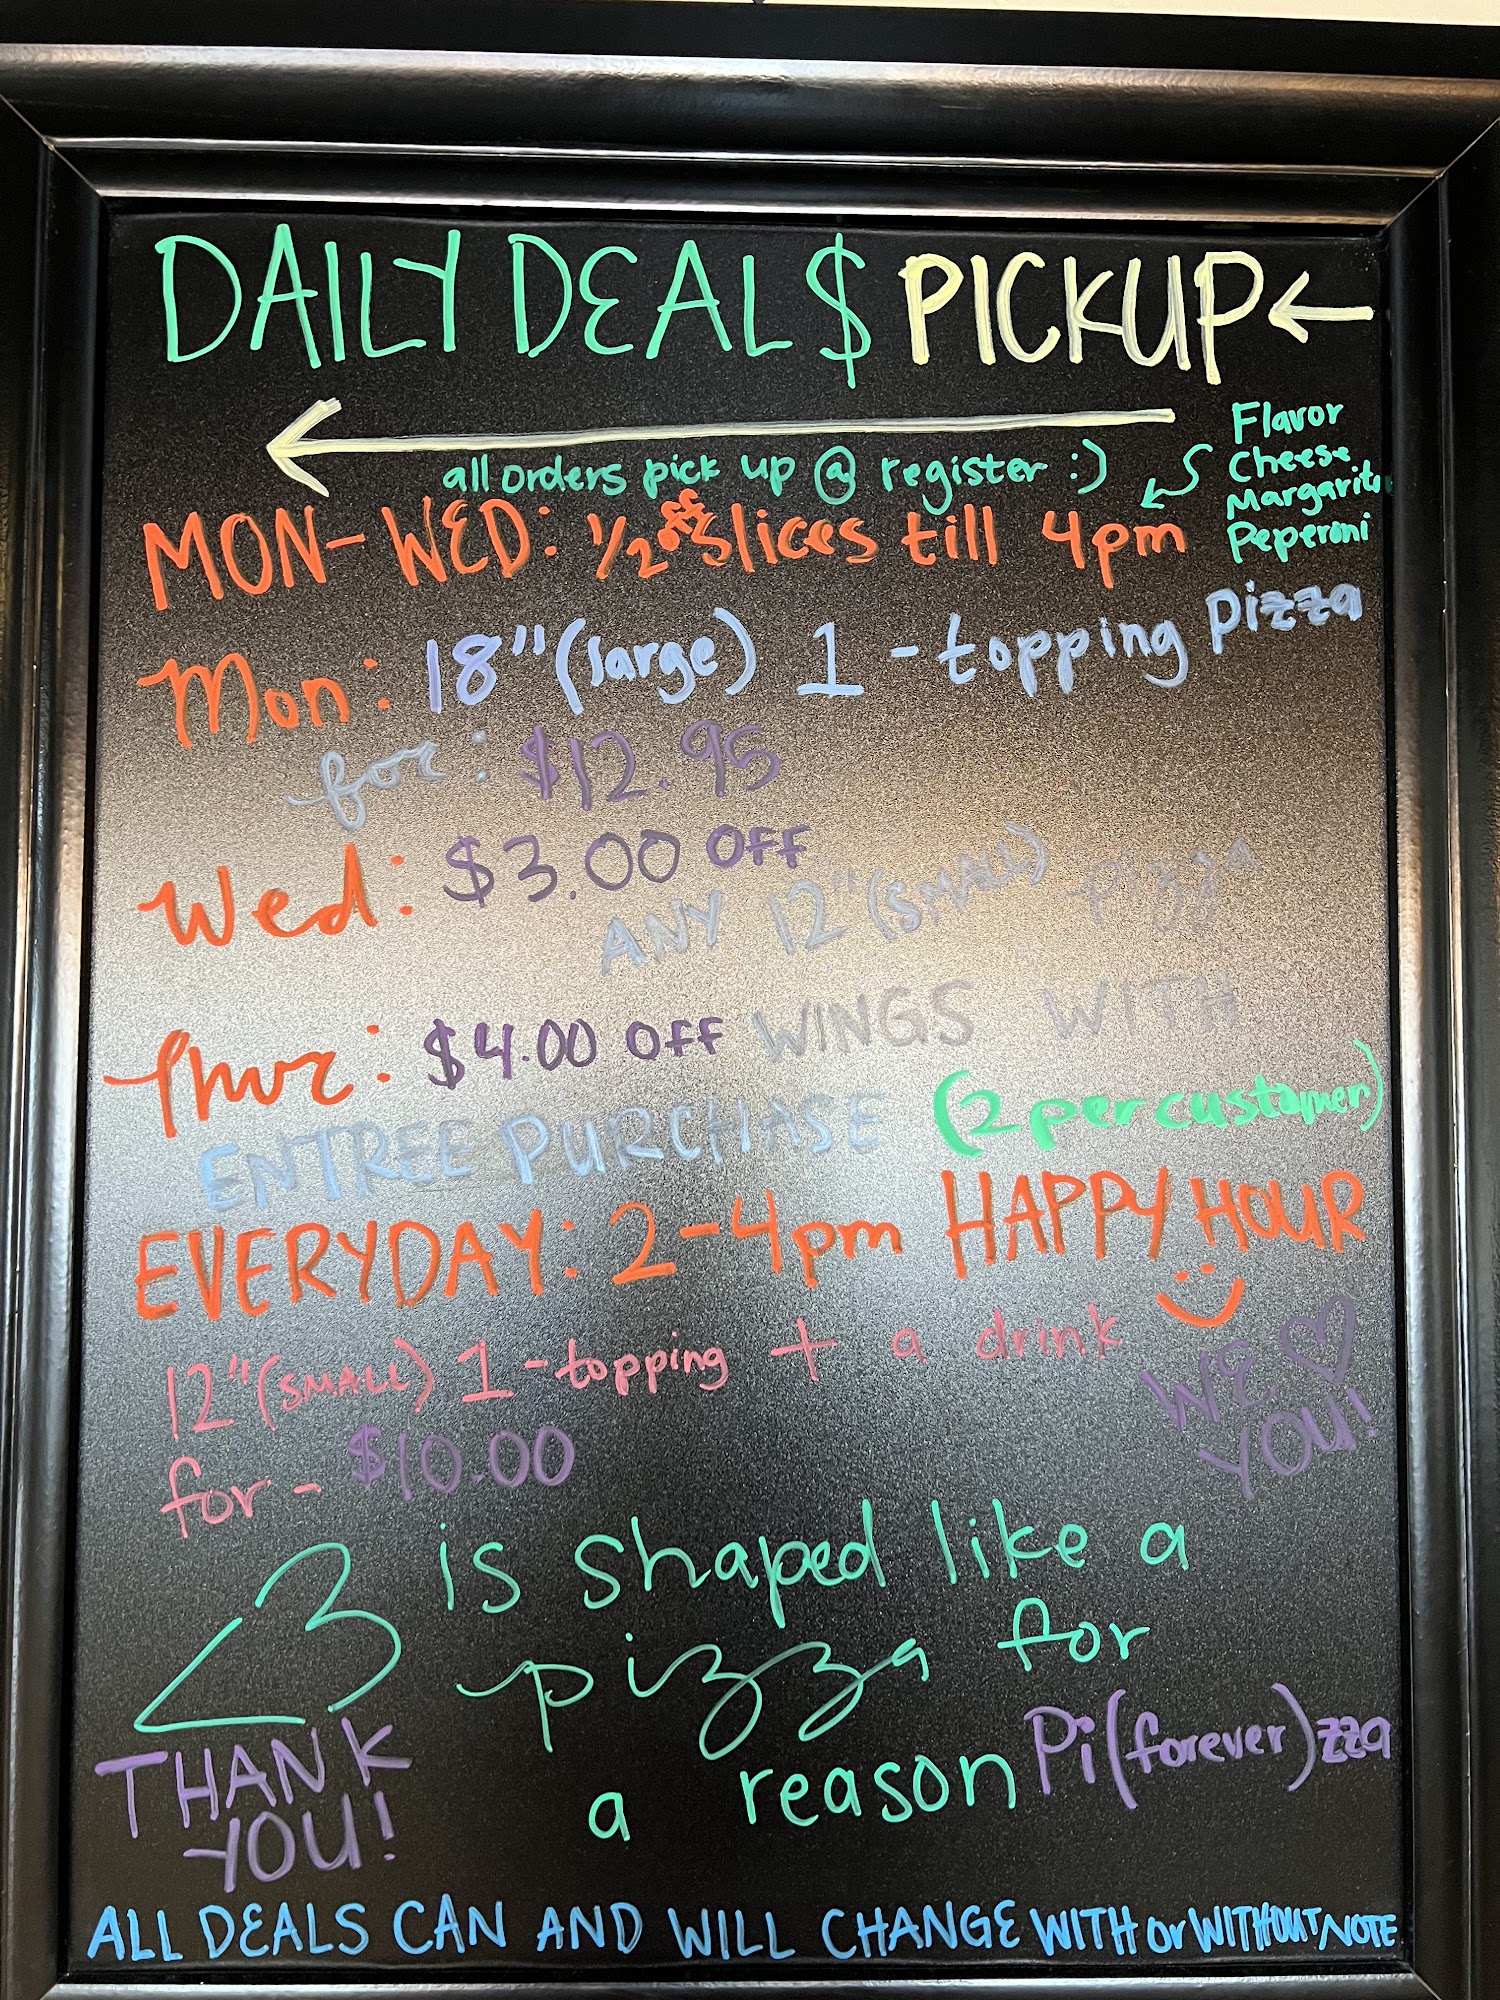 DAILY DEAL$ PICKUP ←
all orders pick up @ register :)
Flavor
Cheese
Margarita
Peperoni
MON-WED: 1/2 off slices till 4pm
Mon: 18" (large) 1-topping pizza
for: $12.95
Wed: $3.00 OFF
ANY 12" (SMALL) pizza
Thur: $4.00 OFF WINGS WITH
ENTREE PURCHASE (2 per customer)
EVERYDAY: 2-4pm HAPPY HOUR
12" (SMALL) 1-topping + a drink
for - $10.00
WE ♡
YOU!
<3 is shaped like a
pizza for
a reason Pi(forever)zza
THANK
YOU!
ALL DEALS CAN AND WILL CHANGE WITH or WITHOUT NOTE